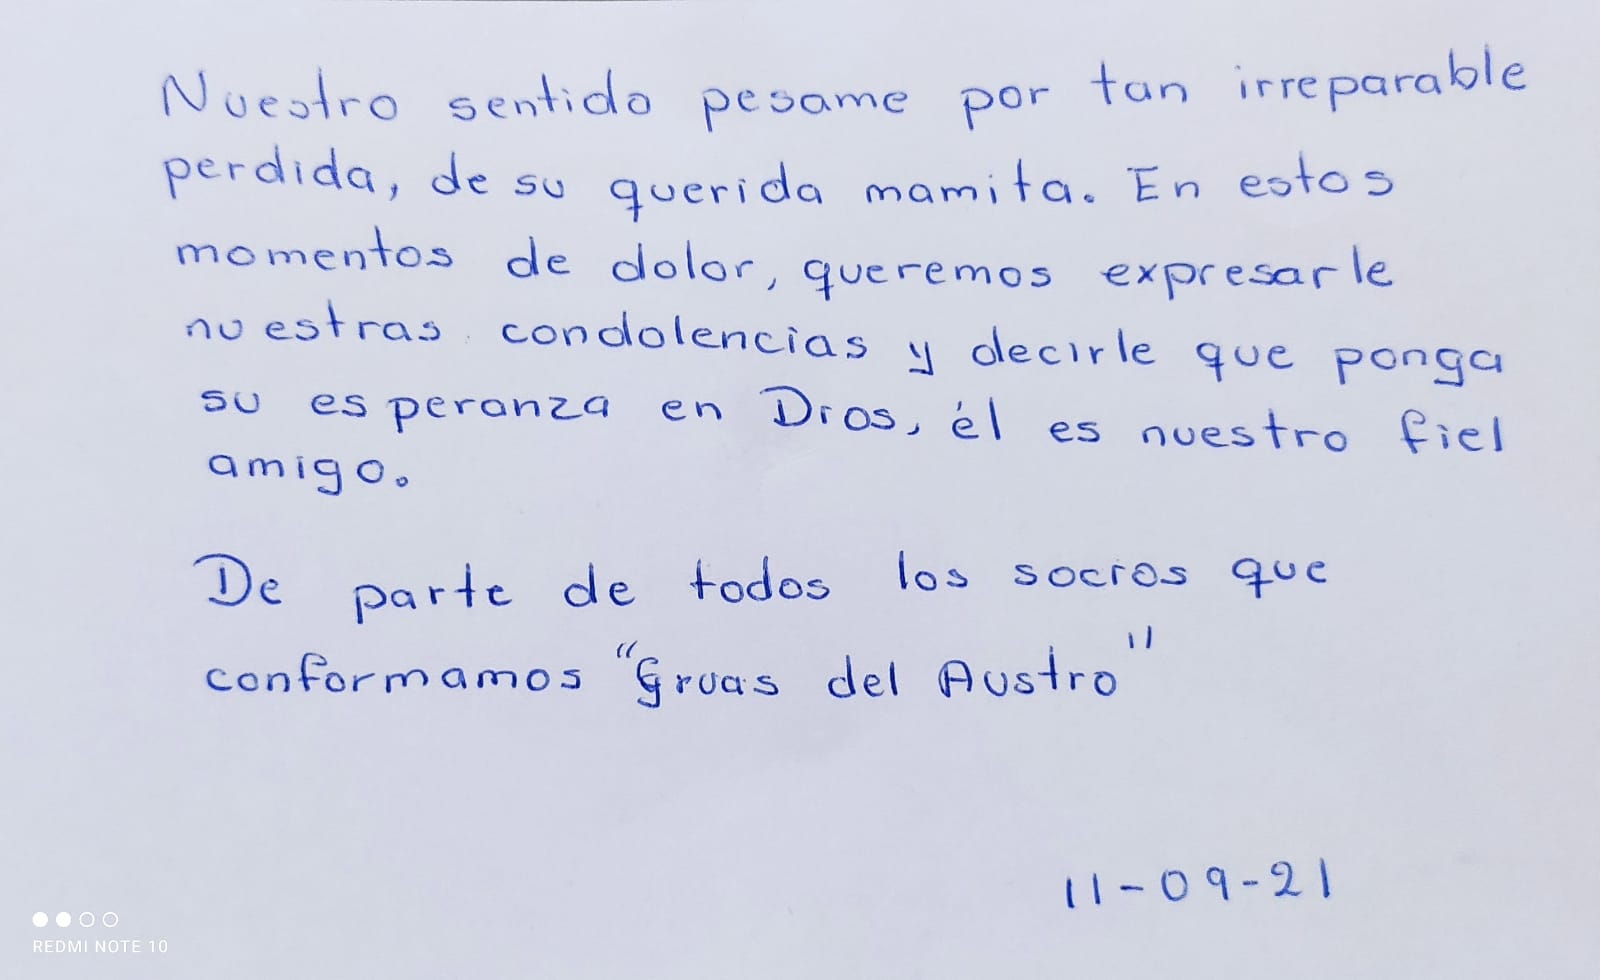 Nuestro sentido pesame por tan irreparable
perdida, de su querida mamita. En estos
momentos de dolor, queremos expresarle
nuestras condolencias y decirle que ponga
su esperanza en Dios, él es nuestro fiel
amigo.
De parte de todos los socios que
conformamos "Gruas del Austro"
11-09-21
REDMI NOTE 10